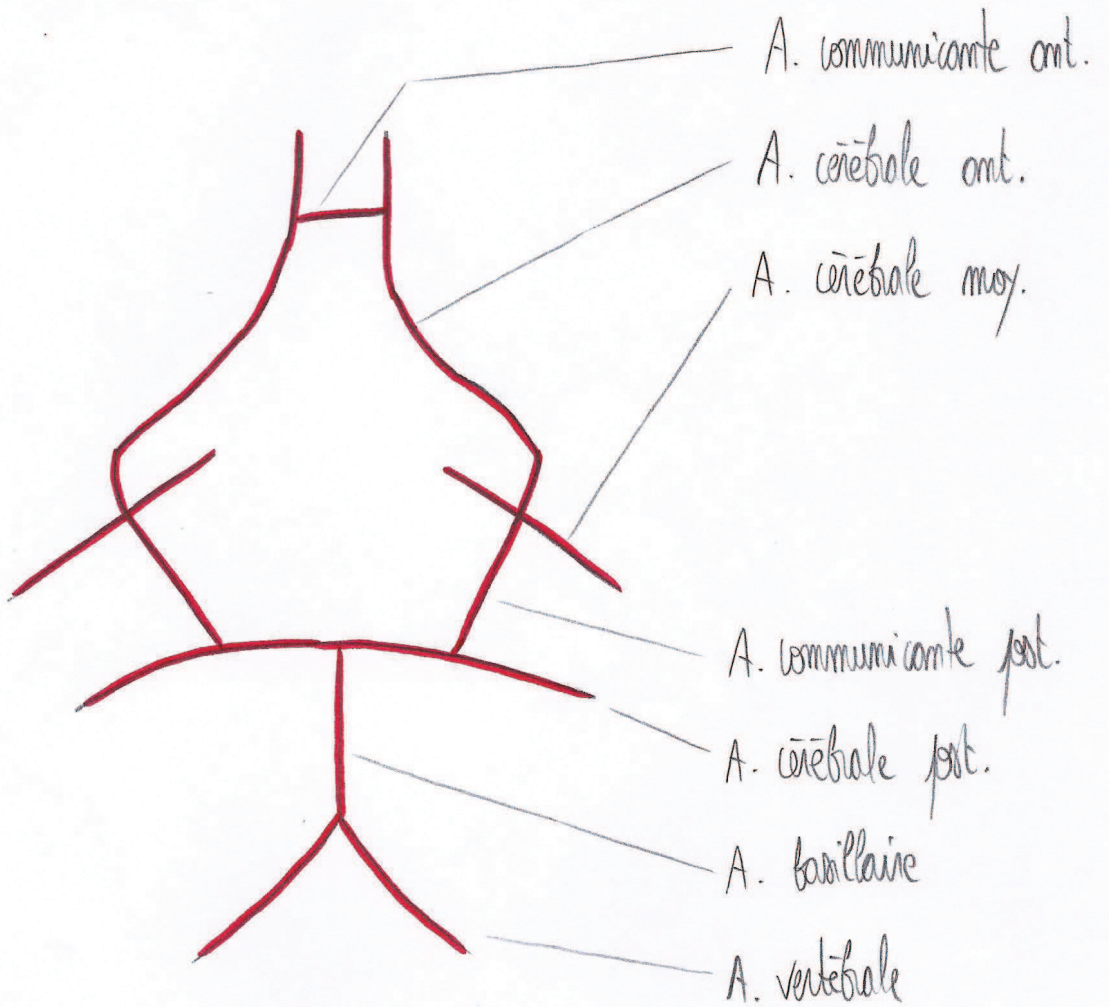 A. communicante ant.
A. cérébrale ant.
A. cérébrale moy.
A. communicante post.
A. cérébrale post.
A. basillaire
A. vertébrale